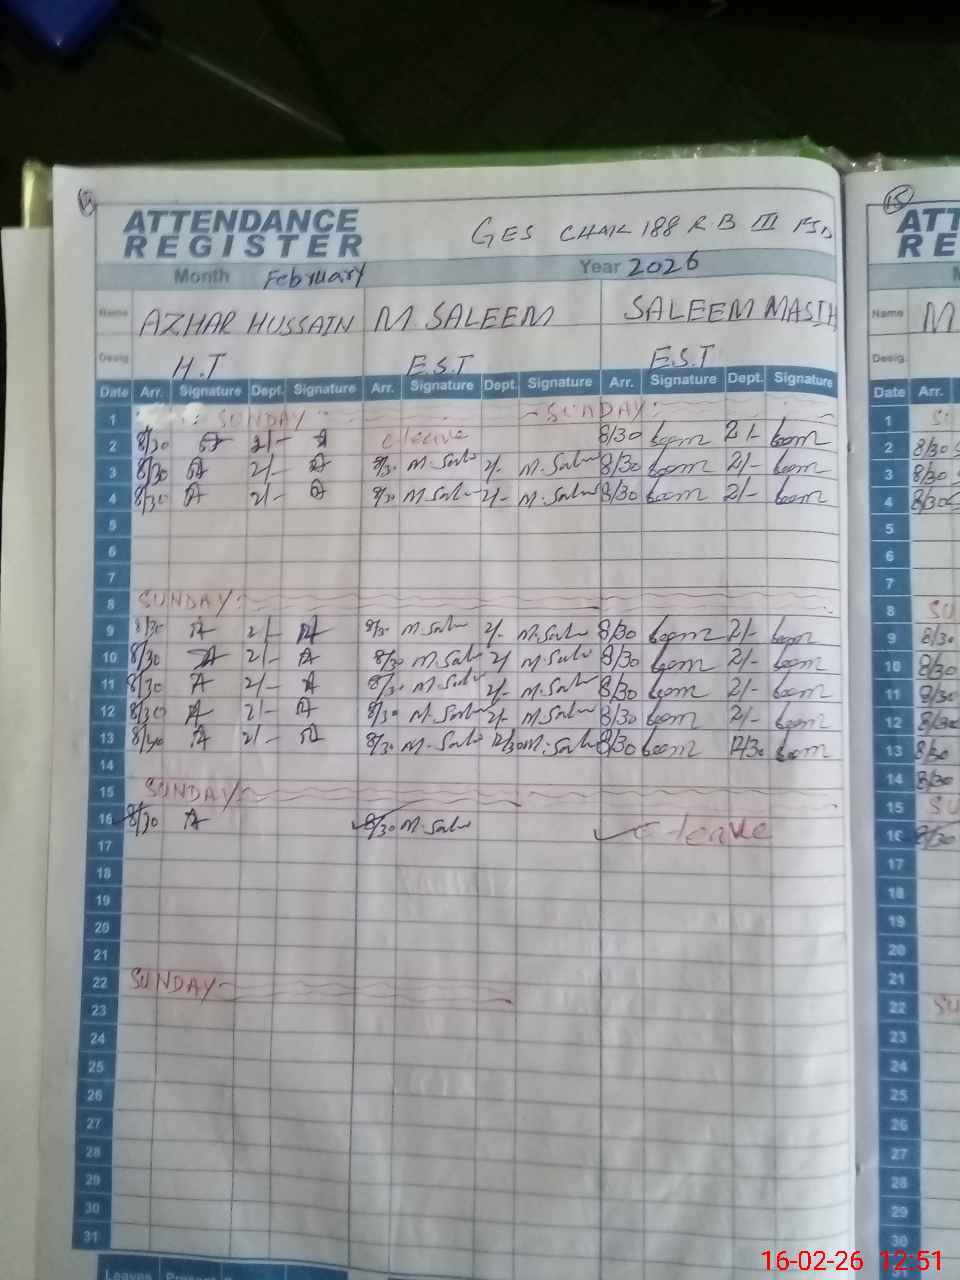 14
ATTENDANCE
REGISTER
GES CHAK 188 R B III FSD
Month February Year 2026
Name AZHAR HUSSAIN M SALEEM SALEEM MASIH
Desig H.T E.S.T E.S.T
Date Arr. Signature Dept. Signature Arr. Signature Dept. Signature Arr. Signature Dept. Signature
1 SUNDAY SUNDAY
2 8/30 2/- c leave 8/30 2/-
3 8/30 2/- 8/30 2/- 8/30 2/-
4 8/30 2/- 8/30 2/- 8/30 2/-
5
6
7
8 SUNDAY
9 8/30 2/- 8/30 2/- 8/30 2/-
10 8/30 2/- 8/30 2/- 8/30 2/-
11 8/30 2/- 8/30 2/- 8/30 2/-
12 8/30 2/- 8/30 2/- 8/30 2/-
13 8/30 2/- 8/30 12/30 8/30 12/30
14
15 SUNDAY
16 8/30 8/30 c leave
17
18
19
20
21
22 SUNDAY
23
24
25
26
27
28
29
30
31
Leaves Present
15
ATT
RE
M
Name M
Desig.
Date Arr.
1 SU
2 8/30
3 8/30
4 8/30
5
6
7
8 SU
9 8/30
10 8/30
11 8/30
12 8/30
13 8/30
14 8/30
15 SU
16 8/30
17
18
19
20
21
22 SU
23
24
25
26
27
28
29
30
16-02-26 12:51